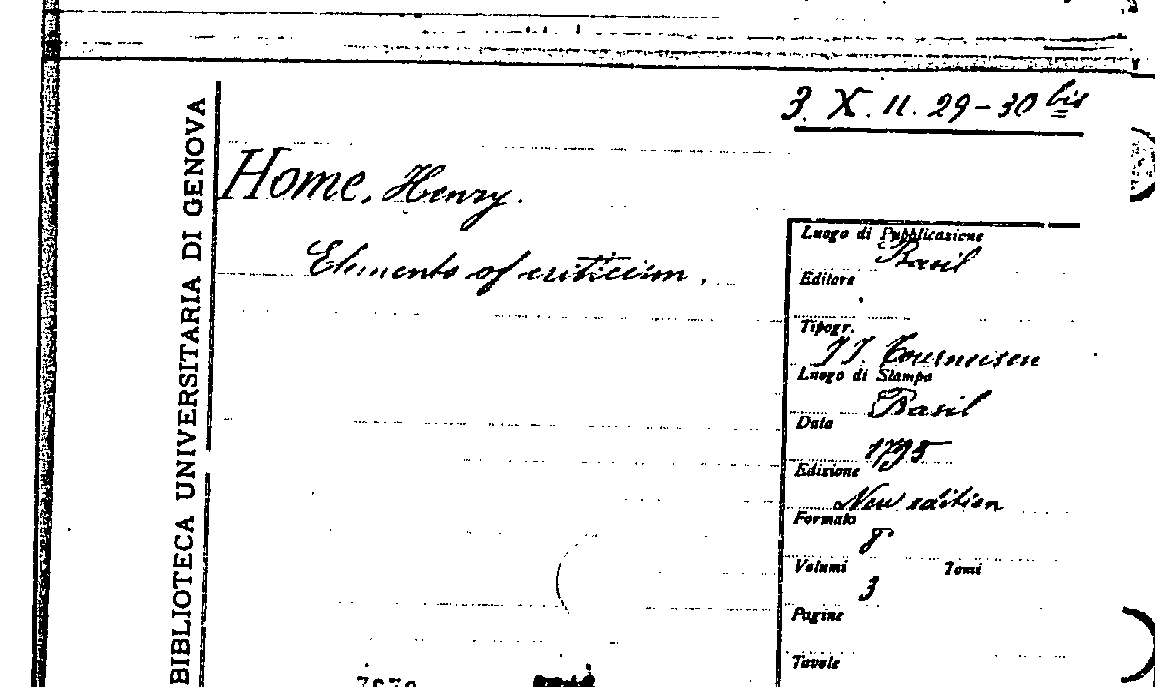 3. X. 11. 29-30 bis
BIBLIOTECA UNIVERSITARIA DI GENOVA
Home, Henry.
Elements of criticism.
Luogo di Pubblicazione
Basil
Editore
Tipogr.
J J. Tourneisen
Luogo di Stampa
Basil
Data
1795
Edizione
New edition
Formato
8
Volumi Tomi
3
Pagine
Tavole